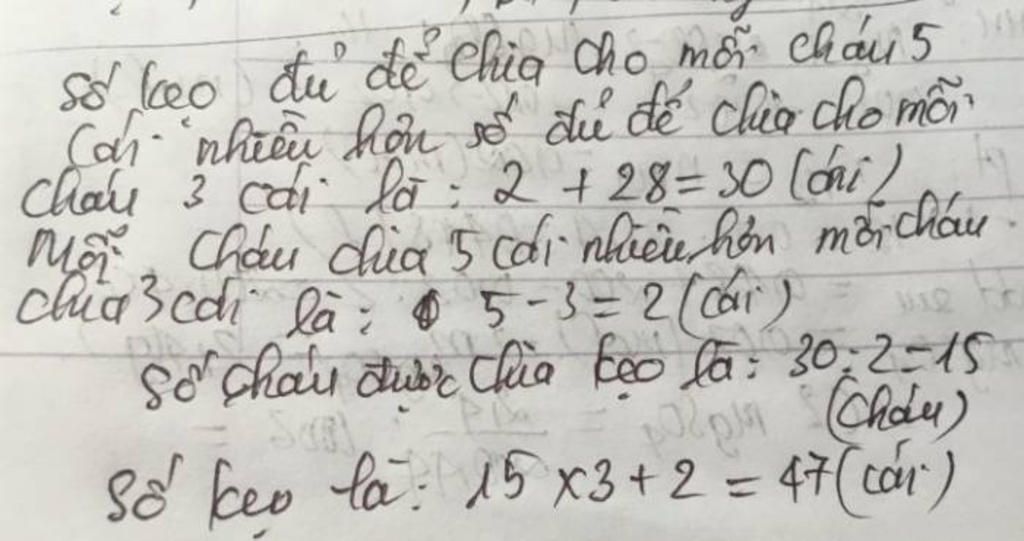 số kẹo đủ để chia cho mỗi cháu 5
cái nhiều hơn số đủ để chia cho mỗi
cháu 3 cái là : 2 + 28 = 30 (cái)
Mỗi cháu chia 5 cái nhiều hơn mỗi cháu
chia 3 cái là : 5 - 3 = 2 (cái)
số cháu được chia kẹo là : 30 : 2 = 15
(cháu)
số kẹo là : 15 x 3 + 2 = 47 (cái)